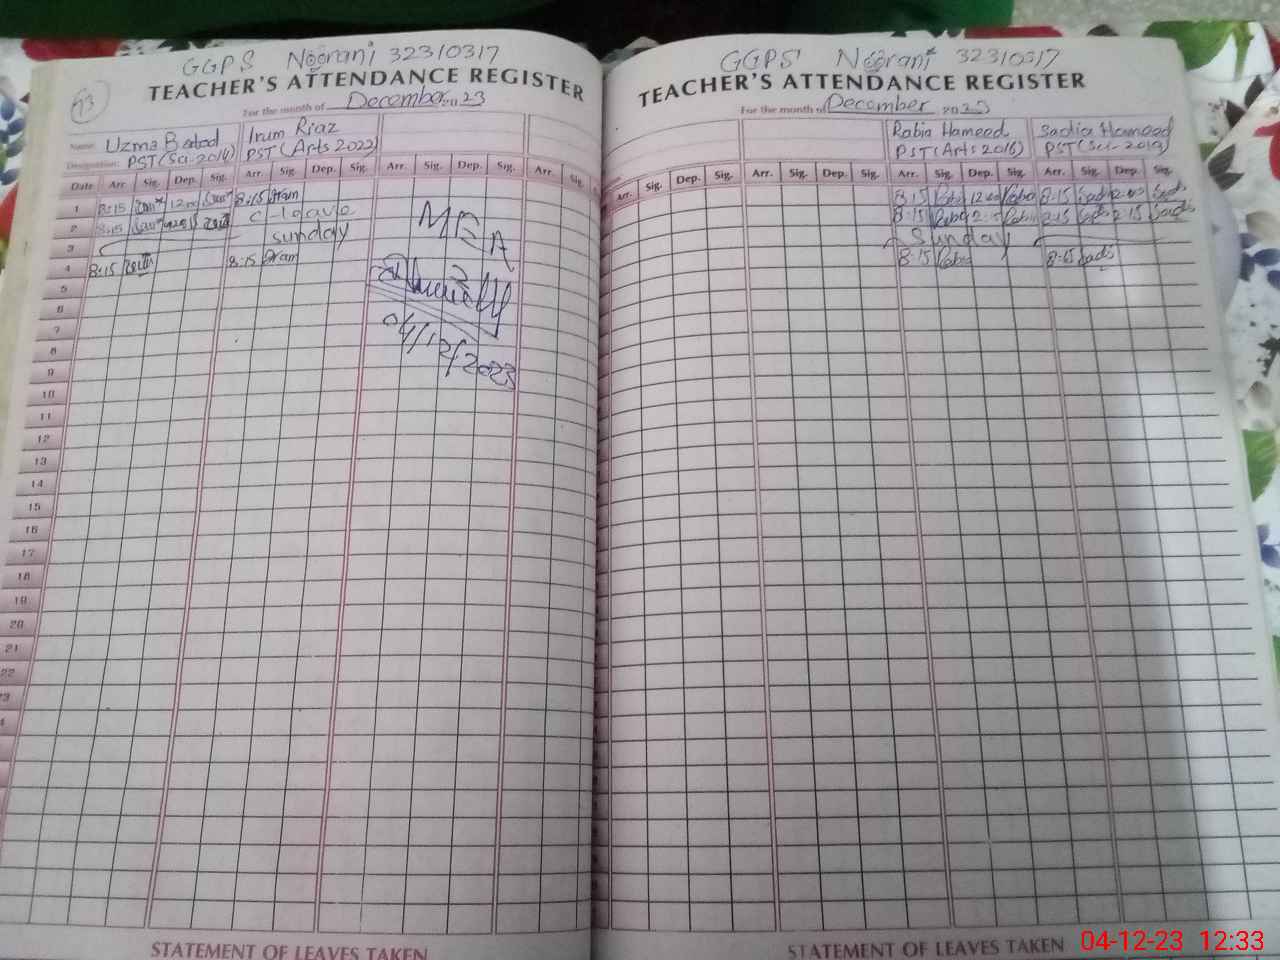 GGPS Noorani 32310317
TEACHER'S ATTENDANCE REGISTER
73
For the month of December 2023
Name: Uzma Irum Riaz
Designation: PST(Sci-2014) PST(Arts 2022)
Date Arr. Sig. Dep. Sig. Arr. Sig. Dep. Sig. Arr. Sig. Dep. Sig. Arr. Sig.
1 8:15 12:00 8:15 Iram
2 8:15 C-leave
3 sunday
4 8:15 8:15 Iram
MEA
04/12/2023
5
6
7
8
9
10
11
12
13
14
15
16
17
18
19
20
21
22
23
STATEMENT OF LEAVES TAKEN
GGPS Noorani 32310317
TEACHER'S ATTENDANCE REGISTER
For the month of December 2023
Rabia Hameed Sadia Hameed
PST(Arts 2016) PST(Sci-2019)
Arr. Sig. Dep. Sig. Arr. Sig. Dep. Sig. Arr. Sig. Dep. Sig. Arr. Sig. Dep. Sig.
8:15 Rabia 12:00 Rabia 8:15 Sadia 12:00 Sadia
8:15 Rabia 2:15 Rabia 8:15 Sadia 2:15 Sadia
Sunday
8:15 Rabia 8:15 Sadia
STATEMENT OF LEAVES TAKEN
04-12-23 12:33